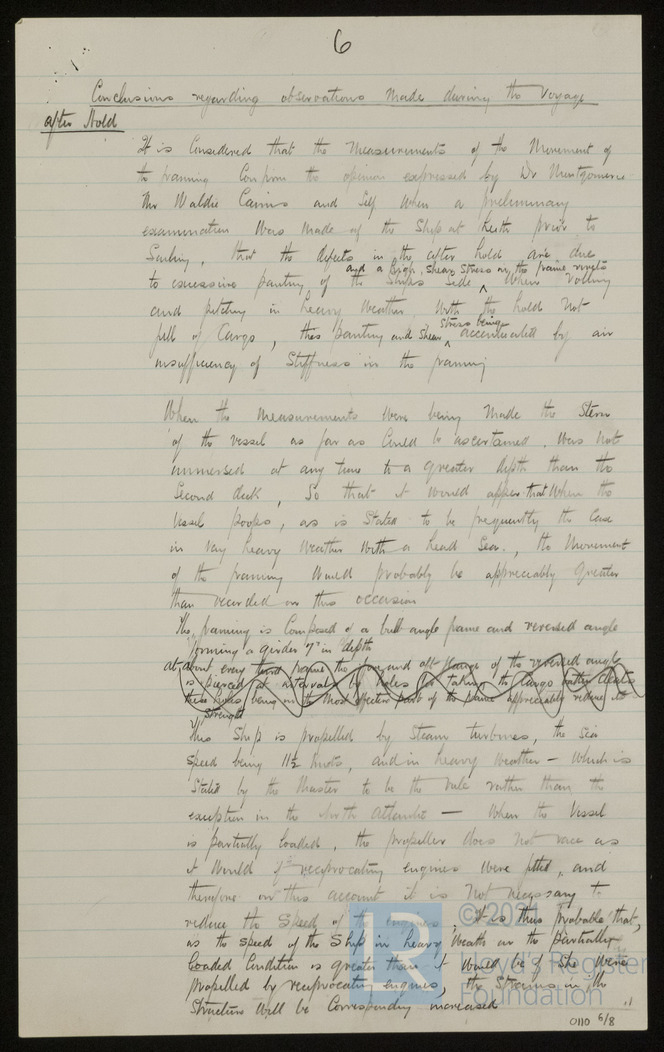 6
Conclusions regarding observations made during the voyage
after Hold
It is Considered that the measurements of the movement of
the framing Confirm the opinion expressed by Dr Montgomerie
Mr Waldie Cairns and Self when a preliminary
examination was made of the Ship at Leith prior to
Sailing, that the defects in the after hold are due
and a high shear stress on the frame rivets
to excessive panting of the Ships Side ^ when rolling
and pitching in heavy weather with the hold not
full of Cargo, this panting and shear ^ stress being accentuated by an
insufficiency of Stiffness in the framing
When the measurements were being made the Stern
of the vessel as far as Could be ascertained was not
immersed at any time to a greater depth than the
Second deck, So that it would appear that when the
vessel poops, as is Stated to be frequently the Case
in very heavy weather with a head Sea, the movement
of the framing would probably be appreciably greater
than recorded on this occasion
The framing is Composed of a bulb angle frame and reversed angle
forming a girder 7" in depth
at about every third frame the fore and aft flange of the reversed angle
is pierced at intervals by holes for taking the Cargo batten cleats
these holes being in the most effective part of the frame appreciably reduce its
strength
This Ship is propelled by Steam turbines, the Sea
Speed being 11½ knots, and in heavy weather – which is
Stated by the Master to be the rule rather than the
exception in the north Atlantic – when the vessel
is partially loaded, the propeller does not race as
it would if reciprocating engines were fitted, and
therefore on this account it is not necessary to
reduce the Speed of the engines. It is thus probable that,
as the speed of the Ship in heavy weather in the partially
loaded Condition is greater than it would be if She were
propelled by reciprocating engines, the Strains in the
Structure will be Correspondingly increased
© 2021
Lloyd's Register
Foundation
0110 6/8